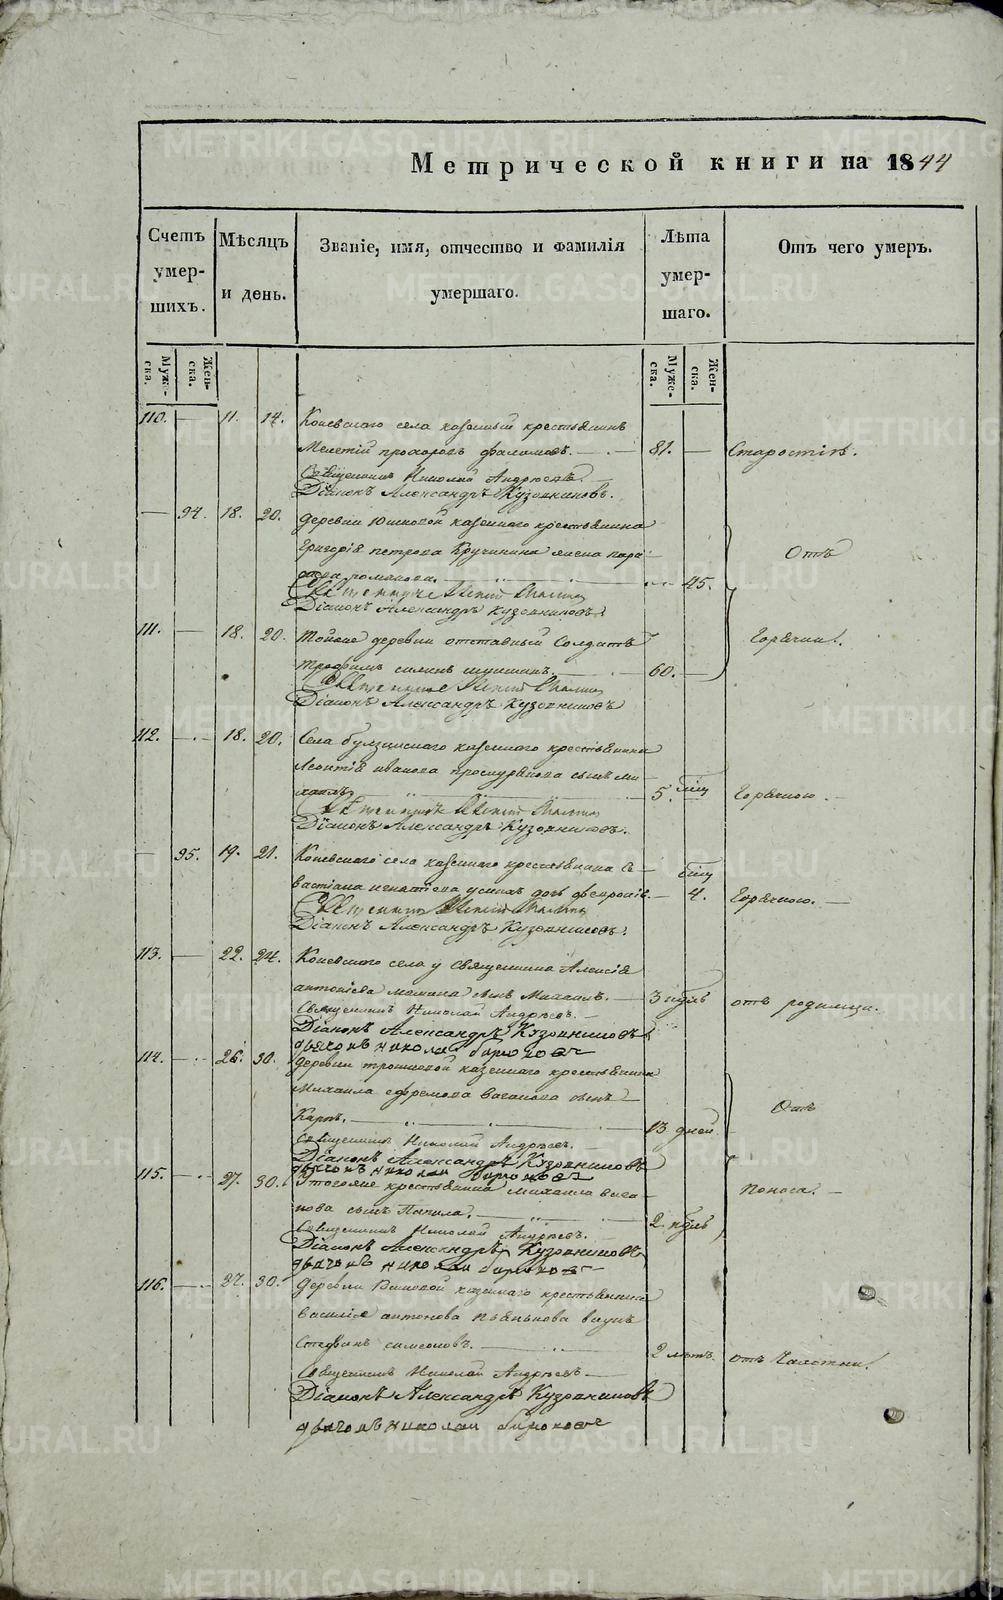 Метрической книги на 1844
Счетъ умер- шихъ.
Мѣсяцъ и день.
Званіе, имя, отчество и фамилія умершаго.
Лѣта умер- шаго.
Отъ чего умеръ.
Муже- ска. Жен- ска.
Муже- ска. Жен- ска.
110. — 11. 14. Коневскаго села казенный крестьянинъ
Мелетій прохоровъ — 81. — Старостію.
Священникъ Николай Андреевъ.
Діаконъ Александръ Кузовниковъ.
— 94. 18. 20. деревни Юшковой казеннаго крестьянина
григорія петрова Кручинина жена пара-
Отъ
романова. 45.
Діаконъ Александръ Кузовниковъ.
111. — 18. 20. тойже деревни отставный Солдатъ
горячки.
трофимъ 60. —
Діаконъ Александръ Кузовниковъ
112. — 18. 20. Села булзинскаго казеннаго крестьянина
Леонтія иванова проскурякова сынъ ми-
хаилъ 5. Горячкою. —
Діаконъ Александръ Кузовниковъ.
— 95. 19. 21. Коневскаго села казеннаго крестьянина Се-
вастіана игнатіева дочь 4. Горячкою. —
Діаконъ Александръ Кузовниковъ.
113. — 22. 24. Коневскаго села у священника Алексія
антоніева сынъ Михаилъ. — 3 нѣдѣль отъ родимца.
Священникъ Николай Андреевъ. —
Діаконъ Александръ Кузовниковъ
дьячокъ николай бирюковъ
114. — 26. 30. деревни казеннаго крестьянина
Михаила ефремова ваганова сынъ
Отъ
Карпъ. — 13 дней.
Священникъ Николай Андреевъ. —
Діаконъ Александръ Кузовниковъ
дьячокъ николай бирюковъ
115. — 27. 30. Тогоже крестьянина михаила вага-
поноса. —
нова сынъ — 2 нѣдѣль
Священникъ Николай Андреевъ. —
Діаконъ Александръ Кузовниковъ
дьячокъ николай бирюковъ
116. — 27. 30. деревни казеннаго крестьянина
василія антонова пьянкова внукъ
Стефанъ симеоновъ. — 2 лѣтъ. отъ Чахотки.
Священникъ Николай Андреевъ —
Діаконъ Александръ Кузовниковъ
дьячокъ николай бирюковъ
METRIKI.GASO-URAL.RU